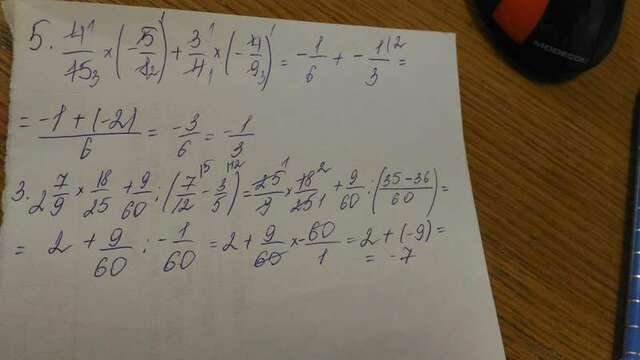 5. 4¹/15₃ × (-5¹/12) + 3¹/4₁ × (-4¹/9₃) = -1/6 + -1^(2/3 =
= -1+(-2)/6 = -3/6 = -1/3
3. 2 7/9 × 18/25 + 9/60 : (7^(5/12 - 3^(12/5) = 25¹/9 × 18²/25₁ + 9/60 : (35-36/60) =
= 2 + 9/60 : -1/60 = 2 + 9/60 × -60/1 = 2 + (-9) =
= -7
MODECOM